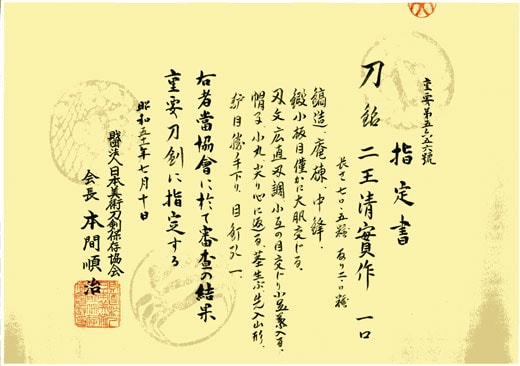 重要第五〇五六號
指定書
刀 銘 二王清實作 一口
長さ七〇・五糎 反り二・〇糎
鎬造、庵棟、中鋒、
鍛小板目僅かに大肌交じる、
刃文広直刃調、小互の目交じり小足葉入る、
帽子小丸尖り心に返る、茎生ぶ先入山形、
鑢目勝手下り、目釘孔一、
右者當協會に於て審査の結果
重要刀剣に指定する
昭和五十一年七月十日
財團法人日本美術刀剣保存協會
会長 本間順治